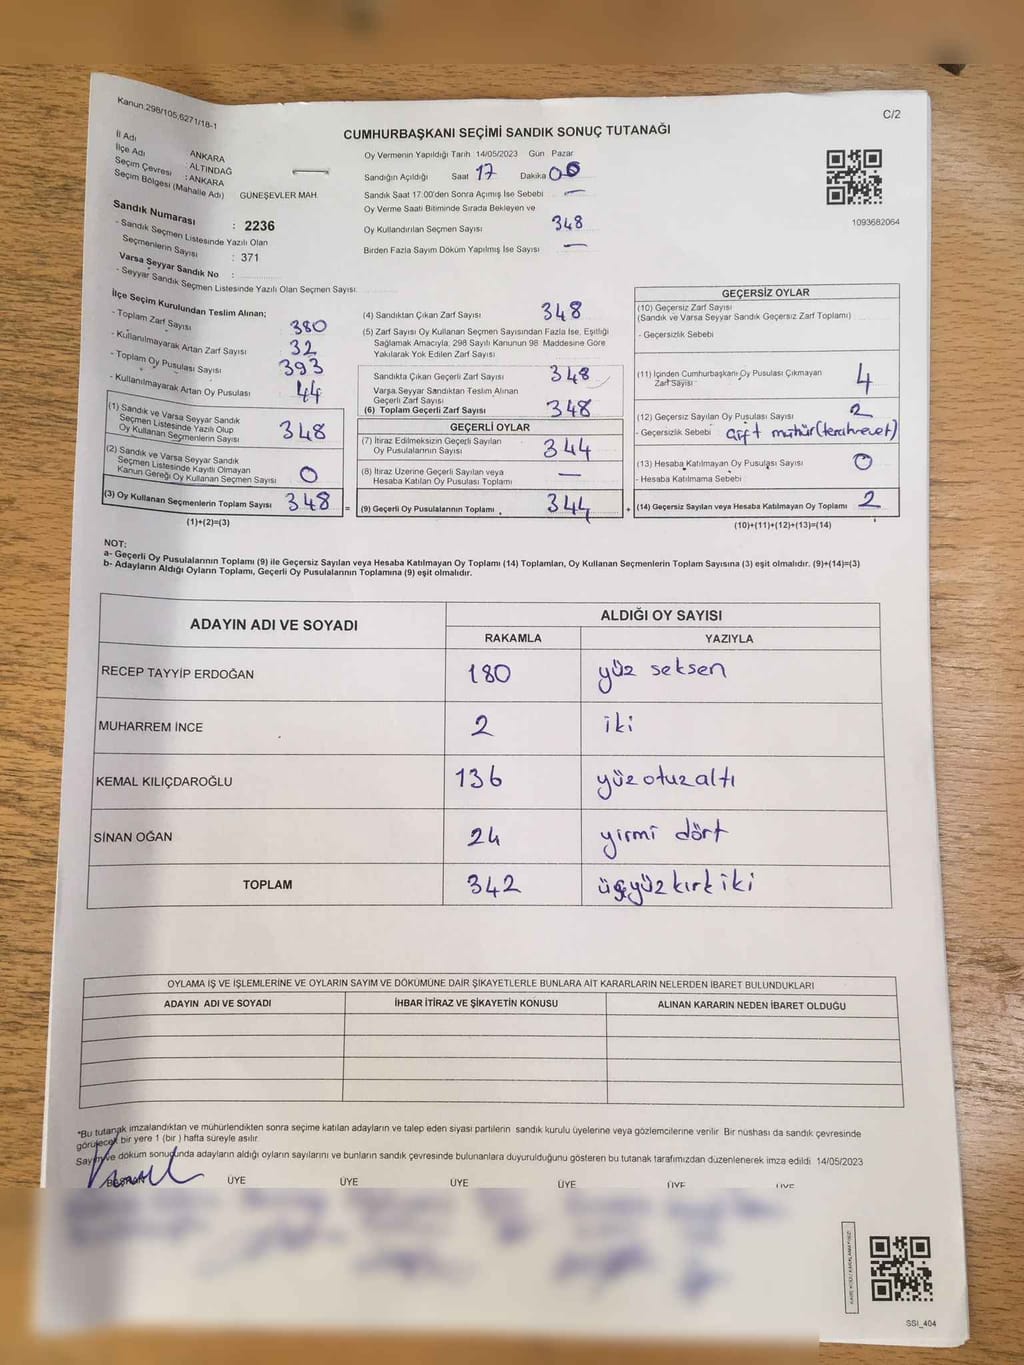 Kanun.298/105,6271/18-1
C/2
CUMHURBAŞKANI SEÇİMİ SANDIK SONUÇ TUTANAĞI
İl Adı
İlçe Adı ANKARA
Seçim Çevresi ALTINDAĞ
Seçim Bölgesi (Mahalle Adı) : ANKARA
GÜNEŞEVLER MAH.
Sandık Numarası : 2236
- Sandık Seçmen Listesinde Yazılı Olan
Seçmenlerin Sayısı : 371
Varsa Seyyar Sandık No :
- Seyyar Sandık Seçmen Listesinde Yazılı Olan Seçmen Sayısı:
Oy Vermenin Yapıldığı Tarih 14/05/2023 Gün Pazar
Sandığın Açıldığı Saat 17 Dakika 00
Sandık Saat 17.00'den Sonra Açımış İse Sebebi —
Oy Verme Saati Bitiminde Sırada Bekleyen ve
Oy Kullandırılan Seçmen Sayısı 348
Birden Fazla Sayım Döküm Yapılmış İse Sayısı —
1093682064
İlçe Seçim Kurulundan Teslim Alınan;
- Toplam Zarf Sayısı 380
- Kullanılmayarak Artan Zarf Sayısı 32
- Toplam Oy Pusulası Sayısı 393
- Kullanılmayarak Artan Oy Pusulası 44
(1) Sandık ve Varsa Seyyar Sandık
Seçmen Listesinde Yazılı Olup
Oy Kullanan Seçmenlerin Sayısı 348
(2) Sandık ve Varsa Seyyar Sandık
Seçmen Listesinde Kayıtlı Olmayan
Kanun Gereği Oy Kullanan Seçmen Sayısı 0
(3) Oy Kullanan Seçmenlerin Toplam Sayısı 348 =
(1)+(2)=(3)
(4) Sandıktan Çıkan Zarf Sayısı 348
(5) Zarf Sayısı Oy Kullanan Seçmen Sayısından Fazla İse, Eşitliği
Sağlamak Amacıyla, 298 Sayılı Kanunun 98 Maddesine Göre
Yakılarak Yok Edilen Zarf Sayısı
Sandıkta Çıkan Geçerli Zarf Sayısı 348
Varsa Seyyar Sandıktan Teslim Alınan
Geçerli Zarf Sayısı
(6) Toplam Geçerli Zarf Sayısı 348
GEÇERLİ OYLAR
(7) İtiraz Edilmeksizin Geçerli Sayılan
Oy Pusulalarının Sayısı 344
(8) İtiraz Üzerine Geçerli Sayılan veya
Hesaba Katılan Oy Pusulası Toplamı —
(9) Geçerli Oy Pusulalarının Toplamı 344 +
GEÇERSİZ OYLAR
(10) Geçersiz Zarf Sayısı
(Sandık ve Varsa Seyyar Sandık Geçersiz Zarf Toplamı)
- Geçersizlik Sebebi
(11) İçinden Cumhurbaşkanı Oy Pusulası Çıkmayan
Zarf Sayısı 4
(12) Geçersiz Sayılan Oy Pusulası Sayısı 2
- Geçersizlik Sebebi çift mühür
(13) Hesaba Katılmayan Oy Pusulası Sayısı 0
- Hesaba Katılmama Sebebi
(14) Geçersiz Sayılan veya Hesaba Katılmayan Oy Toplamı 2
(10)+(11)+(12)+(13)=(14)
NOT:
a- Geçerli Oy Pusulalarının Toplamı (9) ile Geçersiz Sayılan veya Hesaba Katılmayan Oy Toplamı (14) Toplamları, Oy Kullanan Seçmenlerin Toplam Sayısına (3) eşit olmalıdır. (9)+(14)=(3)
b- Adayların Aldığı Oyların Toplamı, Geçerli Oy Pusulalarının Toplamına (9) eşit olmalıdır.
ADAYIN ADI VE SOYADI ALDIĞI OY SAYISI
RAKAMLA YAZIYLA
RECEP TAYYİP ERDOĞAN 180 yüz seksen
MUHARREM İNCE 2 iki
KEMAL KILIÇDAROĞLU 136 yüzotuzaltı
SİNAN OĞAN 24 yirmi dört
TOPLAM 342 üçyüzkırkiki
OYLAMA İŞ VE İŞLEMLERİNE VE OYLARIN SAYIM VE DÖKÜMÜNE DAİR ŞİKAYETLERLE BUNLARA AİT KARARLARIN NELERDEN İBARET BULUNDUKLARI
ADAYIN ADI VE SOYADI İHBAR İTİRAZ VE ŞİKAYETİN KONUSU ALINAN KARARIN NEDEN İBARET OLDUĞU
*Bu tutanak imzalandıktan ve mühürlendikten sonra seçime katılan adayların ve talep eden siyasi partilerin sandık kurulu üyelerine veya gözlemcilerine verilir. Bir nüshası da sandık çevresinde
görülecek bir yere 1 (bir ) hafta süreyle asılır.
Sayım ve döküm sonucunda adayların aldığı oyların sayılarını ve bunların sandık çevresinde bulunanlara duyurulduğunu gösteren bu tutanak tarafımızdan düzenlenerek imza edildi 14/05/2023
BAŞKAN ÜYE ÜYE ÜYE ÜYE ÜYE ÜYE
SSI_404